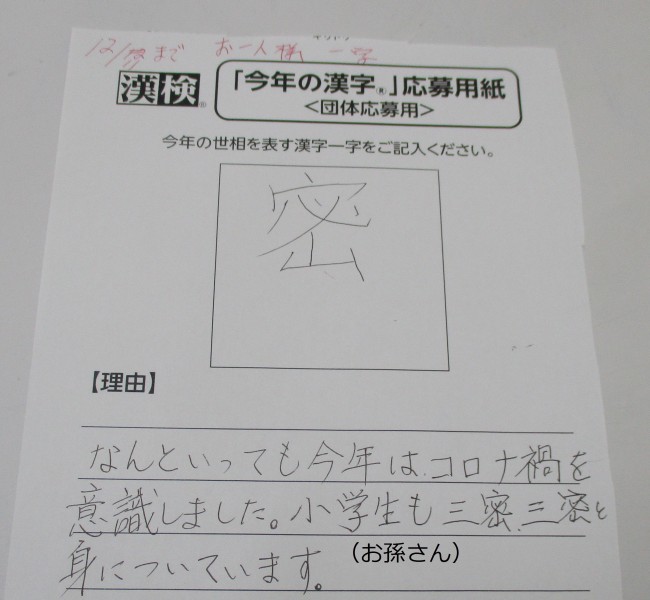 12/ まで お一人様 一字
漢検
「今年の漢字®」応募用紙
<団体応募用>
今年の世相を表す漢字一字をご記入ください。
密
【理由】
なんといっても今年は、コロナ禍を
意識しました。小学生も三密、三密と
身についています。 (お孫さん)